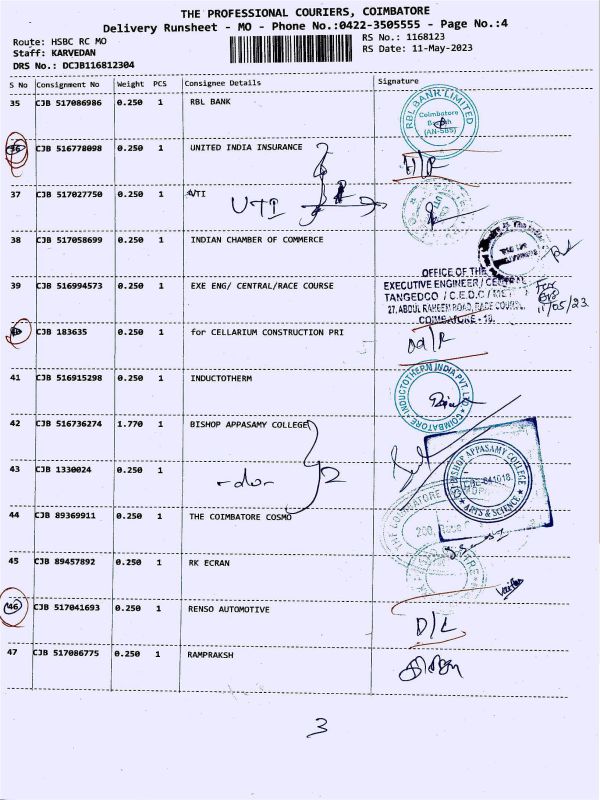 THE PROFESSIONAL COURIERS, COIMBATORE
Delivery Runsheet - MO - Phone No.:0422-3505555 - Page No.:4
Route: HSBC RC MO
Staff: KARVEDAN
DRS No.: DCJB116812304
RS No.: 1168123
RS Date: 11-May-2023
S No Consignment No Weight PCS Consignee Details Signature
35 CJB 517086986 0.250 1 RBL BANK
RBL BANK LIMITED
Coimbatore
Branch
(AN-585)
36 CJB 516778098 0.250 1 UNITED INDIA INSURANCE
37 CJB 517027750 0.250 1 UTI
UTI
38 CJB 517058699 0.250 1 INDIAN CHAMBER OF COMMERCE
39 CJB 516994573 0.250 1 EXE ENG/ CENTRAL/RACE COURSE
OFFICE OF THE
EXECUTIVE ENGINEER / CENTRAL
TANGEDCO / C.E.D.C / MET
27, ABDUL RAHEEM ROAD, RACE COURSE,
COIMBATORE - 18.
11/05/23
CJB 183635 0.250 1 for CELLARIUM CONSTRUCTION PRI
41 CJB 516915298 0.250 1 INDUCTOTHERM
INDUCTOTHERM INDIA PVT. LTD
COIMBATORE
42 CJB 516736274 1.770 1 BISHOP APPASAMY COLLEGE
BISHOP APPASAMY COLLEGE
CBE-641018
ARTS & SCIENCE
43 CJB 1330024 0.250 1
-do-
2
44 CJB 89369911 0.250 1 THE COIMBATORE COSMO
THE COIMBATORE
45 CJB 89457892 0.250 1 RK ECRAN
46 CJB 517041693 0.250 1 RENSO AUTOMOTIVE
D/L
47 CJB 517086775 0.250 1 RAMPRAKSH
3